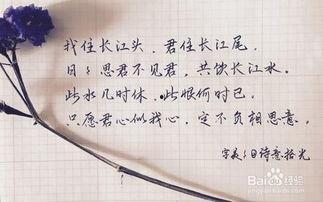 我住长江头,君住长江尾。
日々思君不见君,共饮长江水。
此水几时休,此恨何时已。
只愿君心似我心,定不负相思意。
Baidu经验